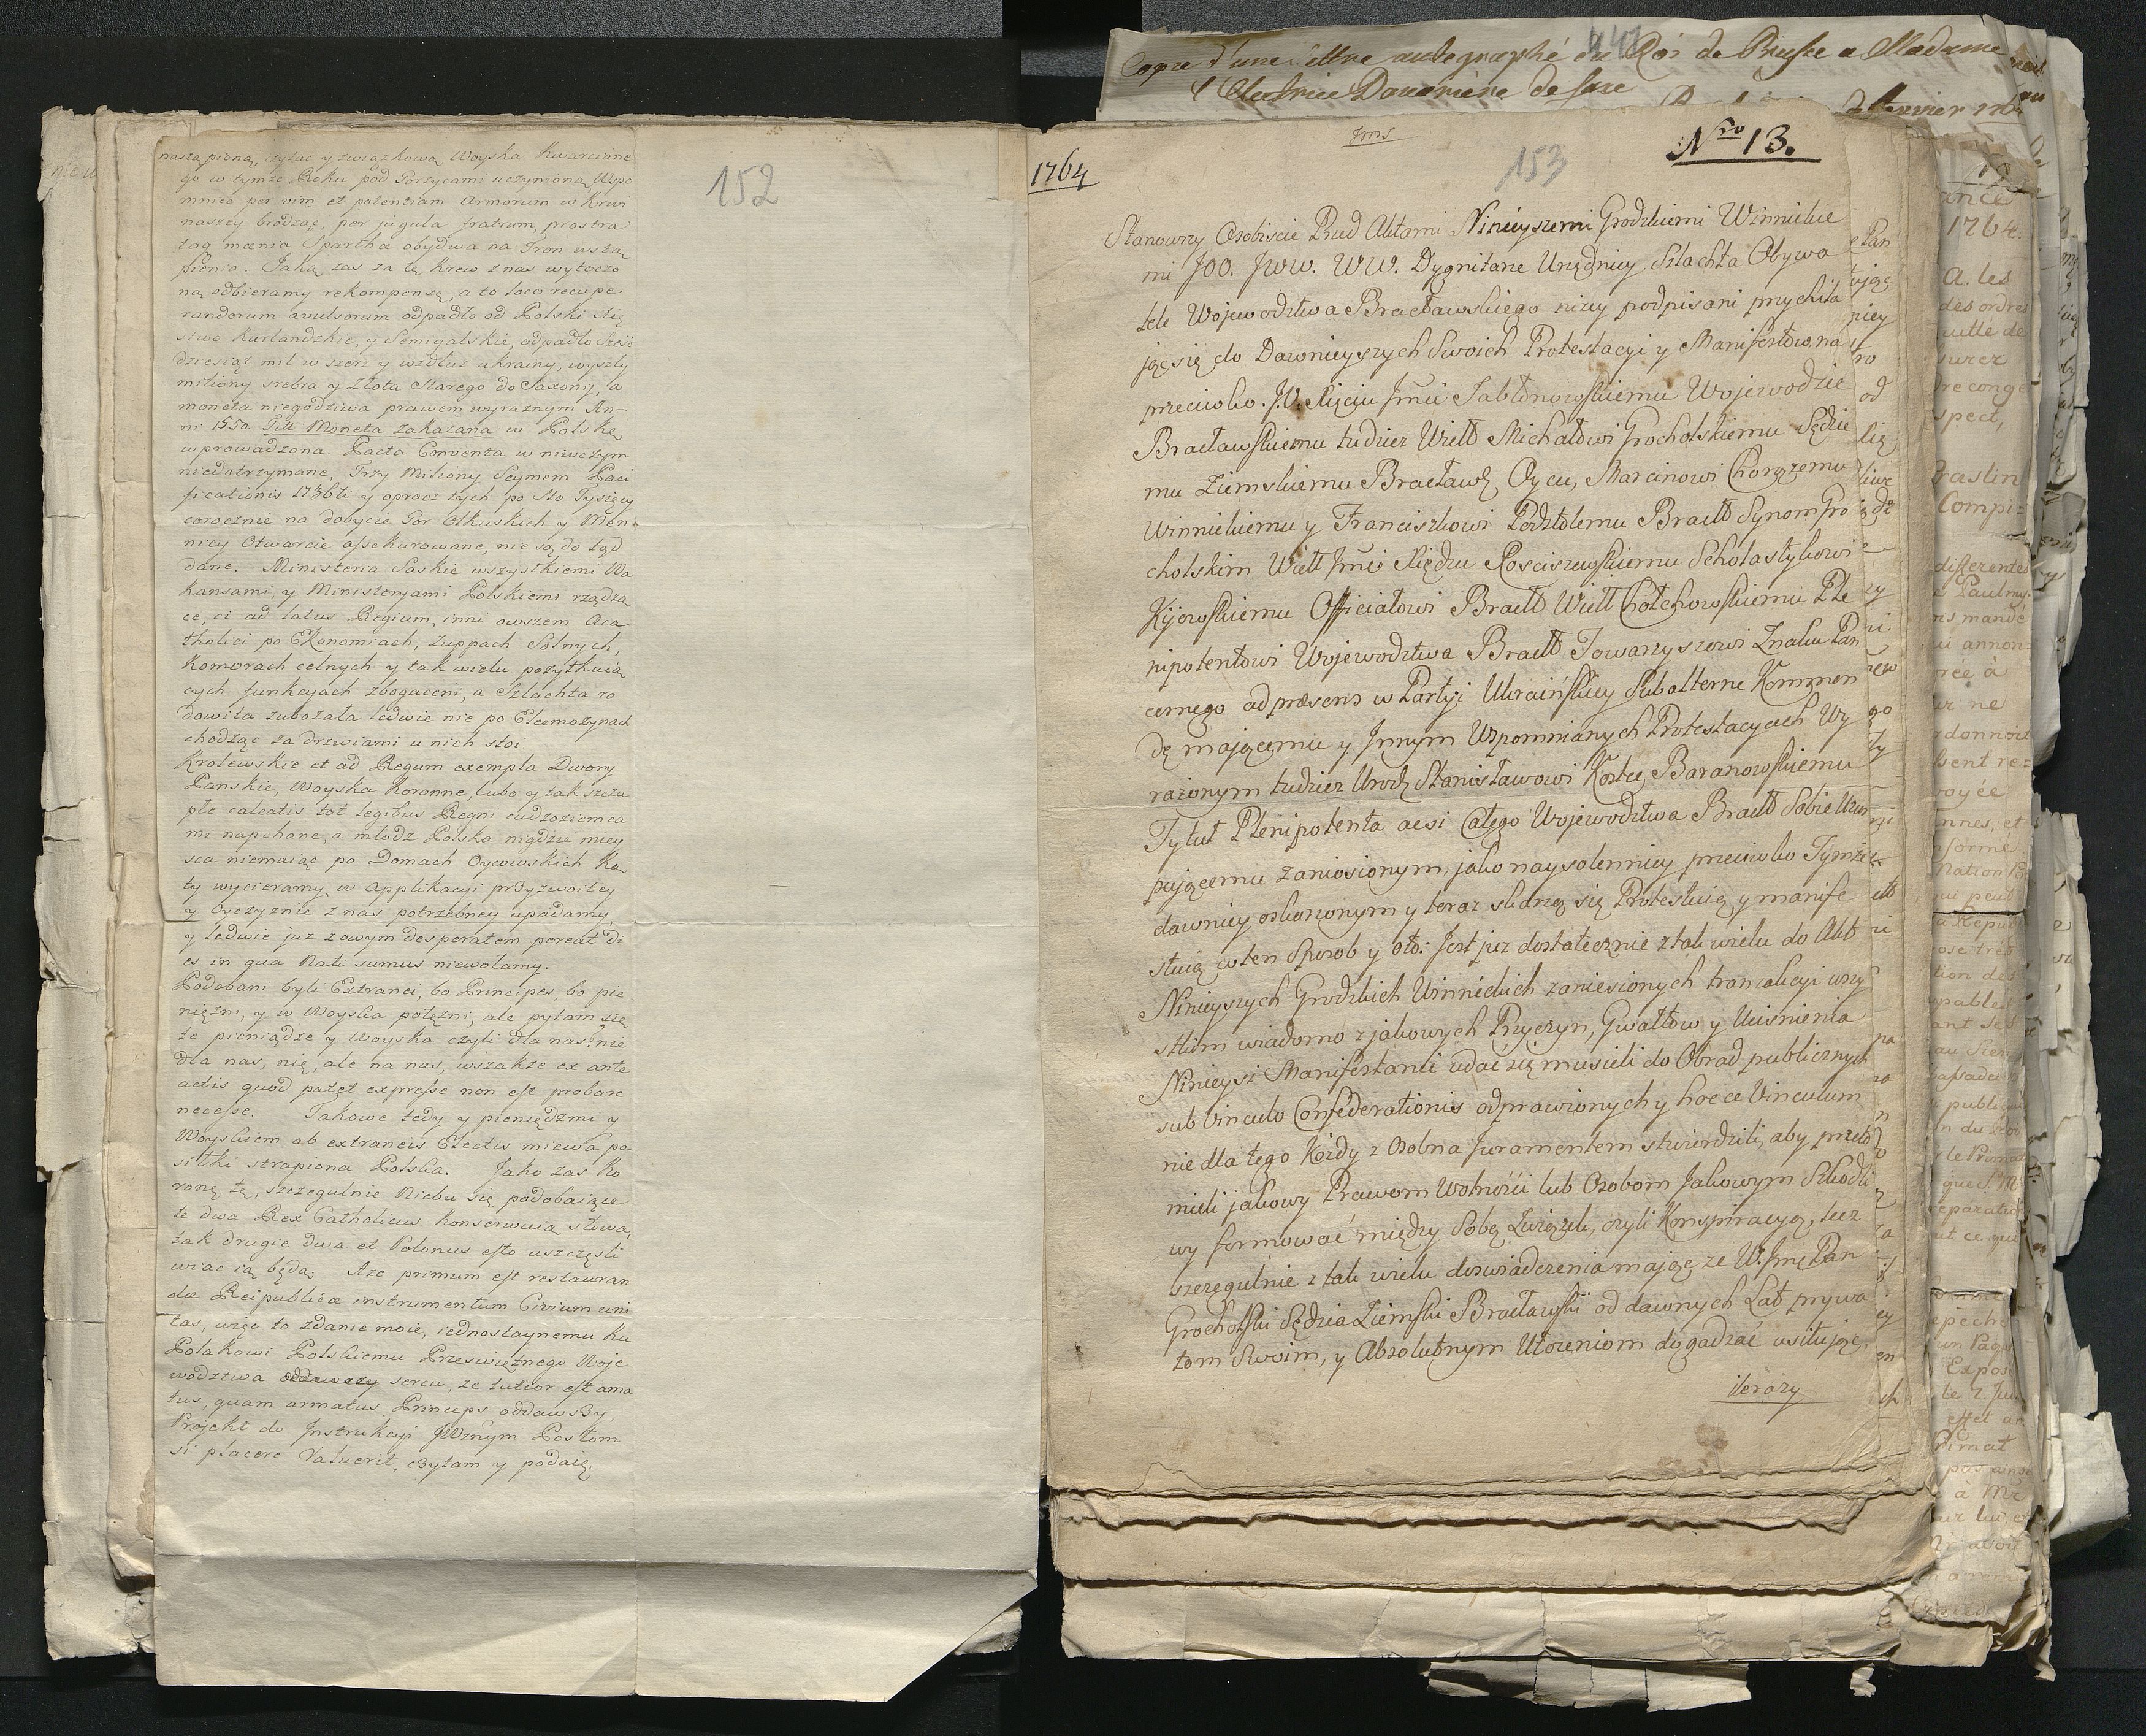 152
nastąpioną, czytac y związkową Woyska Kwarciane
go w tymze Roku pod Gorzycami uczynioną, Wspo
mnieć per vim et potentiam Armorum w Krwi
naszey brodząc, per jugula fratrum, prostra
taq mœnia Spartha obydwa na Tron wstą
pienia. Jaką zas za tę Krew z nas wytoczo
ną odbieramy rekompensę, a to loco recupe
randorum avulsorum odpadło od Polski Xię
stwo Kurlandzkie, y Semigalskie, odpadło Szesc
dziesiąt mil w szerz y wzdłuz ukrainy, wyszły
miliony srebra y złota Starego do Saxonij, a
moneta niegodziwa prawem wyraznym An-
ni 1550 Titt Moneta Zakazana w Polskę
wprowadzona. Pacta Conventa w niwczym
niedotrzymane, Trzy Miliony Seymem Paci
ficationis 1736ti y oprocz tych po Sto Tysięcy
corocznie na dobycie Gor Olkuskich y Men-
nicy Otwarcie assekurowane, nie są do tąd
dane. Ministeria Saskie wszystkiemi Wa
kansami, y Ministeryami Polskiemi rządzą
ce, ci ad latus Regium, inni owszem Aca
tholici po Ekonomiach, Zuppach Solnych,
Komorach celnych y tak wielu pozytkuią
cych funkcyach zbogaceni, a Szlachta ro
dowita zubozała ledwie nie po Eleemozynach
chodząc za drzwiami u nich stoi.
Krolewskie et ad Regum exempla Dwory
Panskie, Woyska Koronne, lubo y tak szczu
płe calcatis tot legibus Regni cudzoziemca
mi napchane, a młodz Polska nigdzie miey
sca niemaiąc po Domach Oycowskich Ką
ty wycieramy, w applikacyi przyzwoitey
y Oyczyznie z nas potrzebney upadamy,
y ledwie juz z owym desperatem pereat di
es in qua Nati sumus niewołamy.
Podobani byli Extranei, bo Principes, bo pie
nięzni, y w Woyska potęzni, ale pytam się
te pieniądze y Woyska czyli dla nas? nie
dla nas, nie, ale na nas, wszakze ex ante
actis quod patet expresse non est probare
necesse. Takowe tedy y pieniędzmi y
Woyskiem ab extraneis Electis miewa po
siłki strapiona Polska. Jako zas Ko
ronę tę, szczegulnie Niebu się podobaiące
te dwa Rex Catholicus Konserwuią słowa,
tak drugie dwa et Polonus esto uszczęsli
wiac ią będą. Aze primum est restauran
dæ Reipublicæ instrumentum Civium uni
tas, więc to zdanie moie, iednostaynemu Ku
Polakowi Polskiemu Przeswiętnego Woje
wodztwa oddawszy sercu, ze tutior est ama
tus, quam armatus Princeps oddawszy,
Projekt do Instrukcyi JWznym Posłom
si placere Valuerit, czytam y podaię.
Copie d'une lettre autographe du Roi de Prusse a Madame
l'Electrice Douariere de Saxe
1764
153
Nro 13.
Stanowszy Osobiscie Przed Aktami Ninieyszemi Grodzkiemi Winnickie
mi JOO. JWW. WW. Dygnitarze Urzędnicy Szlachta Obywa
tele Wojewodztwa Bracławskiego nizey podpisani przychila
jąc się do Dawnieyszych Swoich Protestacyi y Manifestow, na
przeciwko. J.O. Xięciu Jmci Jabłonowskiemu Wojewodzie
Bracławskiemu tudziez Wielb Michałowi Grocholskiemu Sędzie
mu Ziemskiemu Bracławs, Oycu, Marcinowi Chorązemu
Winnickiemu y Franciszkowi Podstolemu Bracłł Synom Gro
cholskim Wiell Jmci Xiędzu Rosciszewskiemu Scholastykowi
Kijowskiemu Officiałowi Bracłł Wiell Chołchowskiemu Ple
nipotentowi Wojewodztwa Bracłł Towarzyszowi Znaku Pan
cernego ad præsens w Partyi Ukraińskiey Subalterne Kommen
dę mającemu y Innym Wspomnianych Protestacyach Wy
rażonym tudziez Urodz Stanisławowi Kostce Baranowskiemu
Tytuł Plenipotenta acsi Całego Wojewodztwa Bracłł Sobie Uzur
pującemu zaniosionym, jako naysolenniey przeciwko Tymże
dawniey oskarzonym y teraz skarzą się Protestuią y manife
stuią w ten Sposob y oto: Jest juz dostatecznie z tak wielu do Akt
Ninieyszych Grodzkich Winnickich zaniesionych tranzakcyi wszy
stkim wiadomo z jakowych Przyczyn, Gwałtow y Ucisnienia
Ninieysi Manifestanti udac się musieli do Obrad publicznych
sub Vinculo Confederationis odprawionych y hocce Vinculum
nie dla tego Kożdy z Osobna Juramentem stwierdzili, aby przeto
mieli jakowy Prawom Wolności lub Osobom Jakowym Szkodli
wy formować między Sobą Związek, czyli Konspiracyą, lecz
szczegulnie z tak wielu doswiadczenia mając ze W. Jmc Pan
Grocholski Sędzia Ziemski Bracławski od dawnych Lat prywa
tom Swoim, y Absolutnym Ułozeniom dogadzać usiłując,
iterazy